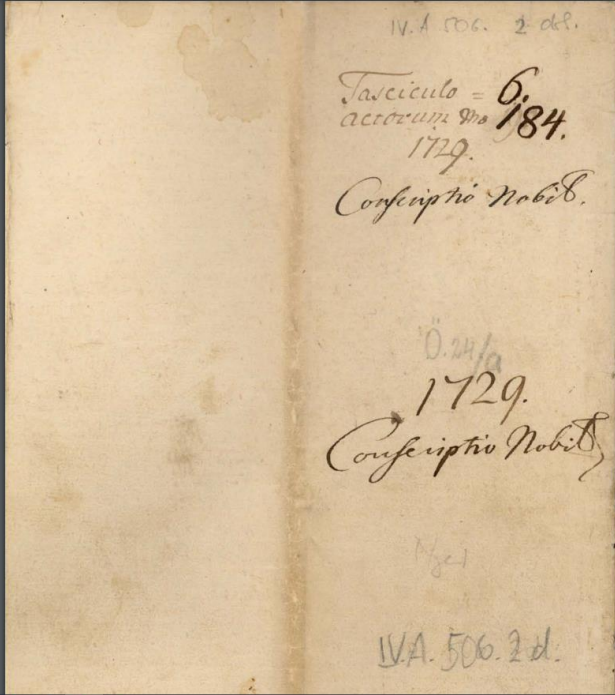 IV. A 506. 2 db.
Fasciculo = 6.
actorum No 184.
1729.
Conscriptio Nobil.
Ö.24/a
1729.
Conscriptio Nobil
IV.A. 506. 2 d.